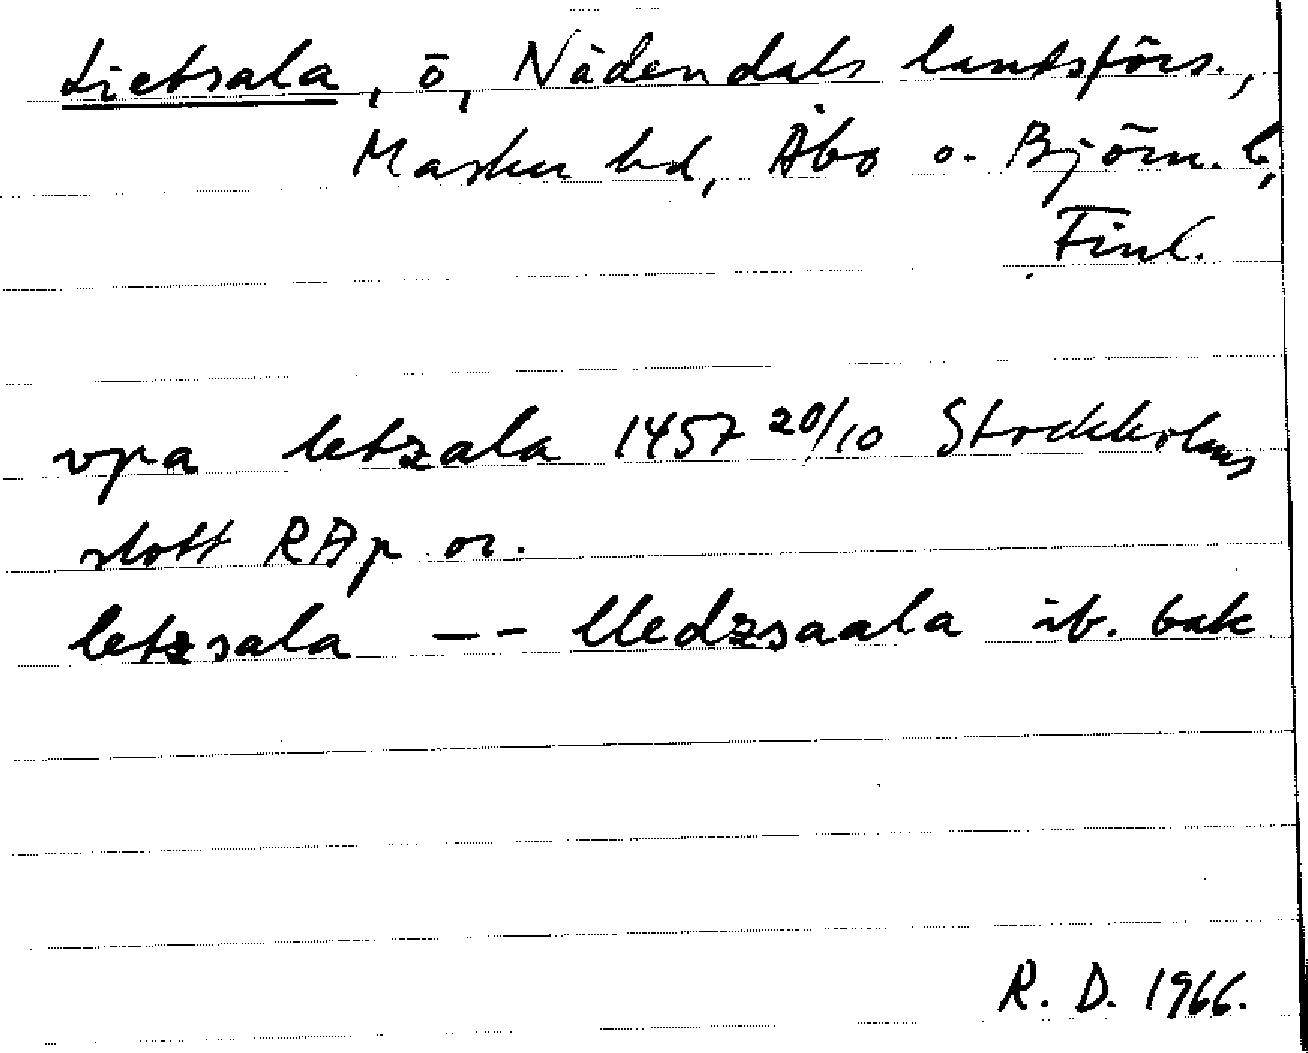 Lietsala, ö, Nådendals landsförs.,
Masku hd, Åbo o. Björn. l.,
Finl.
vpa letzala 1457 20/10 Stockholms
slott RAp or.
letzsala -- lledzsaala ib. bak
R. D. 1966.